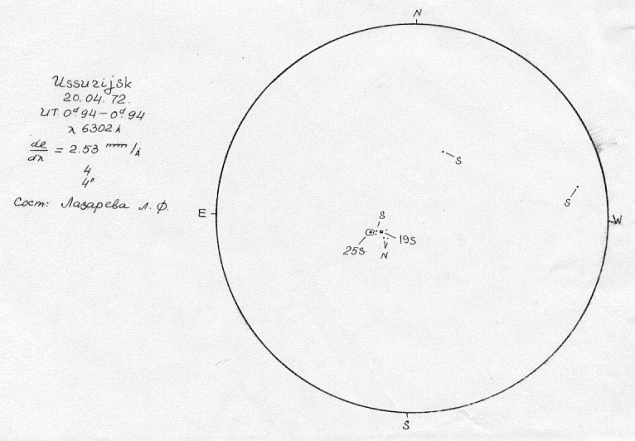 N
Ussurijsk
20.04.72.
UT 0ᵈ94–0ᵈ94
λ 6302Å
de/dλ = 2.53 mm/Å
4
4"
Сост: Лазарева Л.Ф.
S
S
E
S
W
25S
19S
N
S